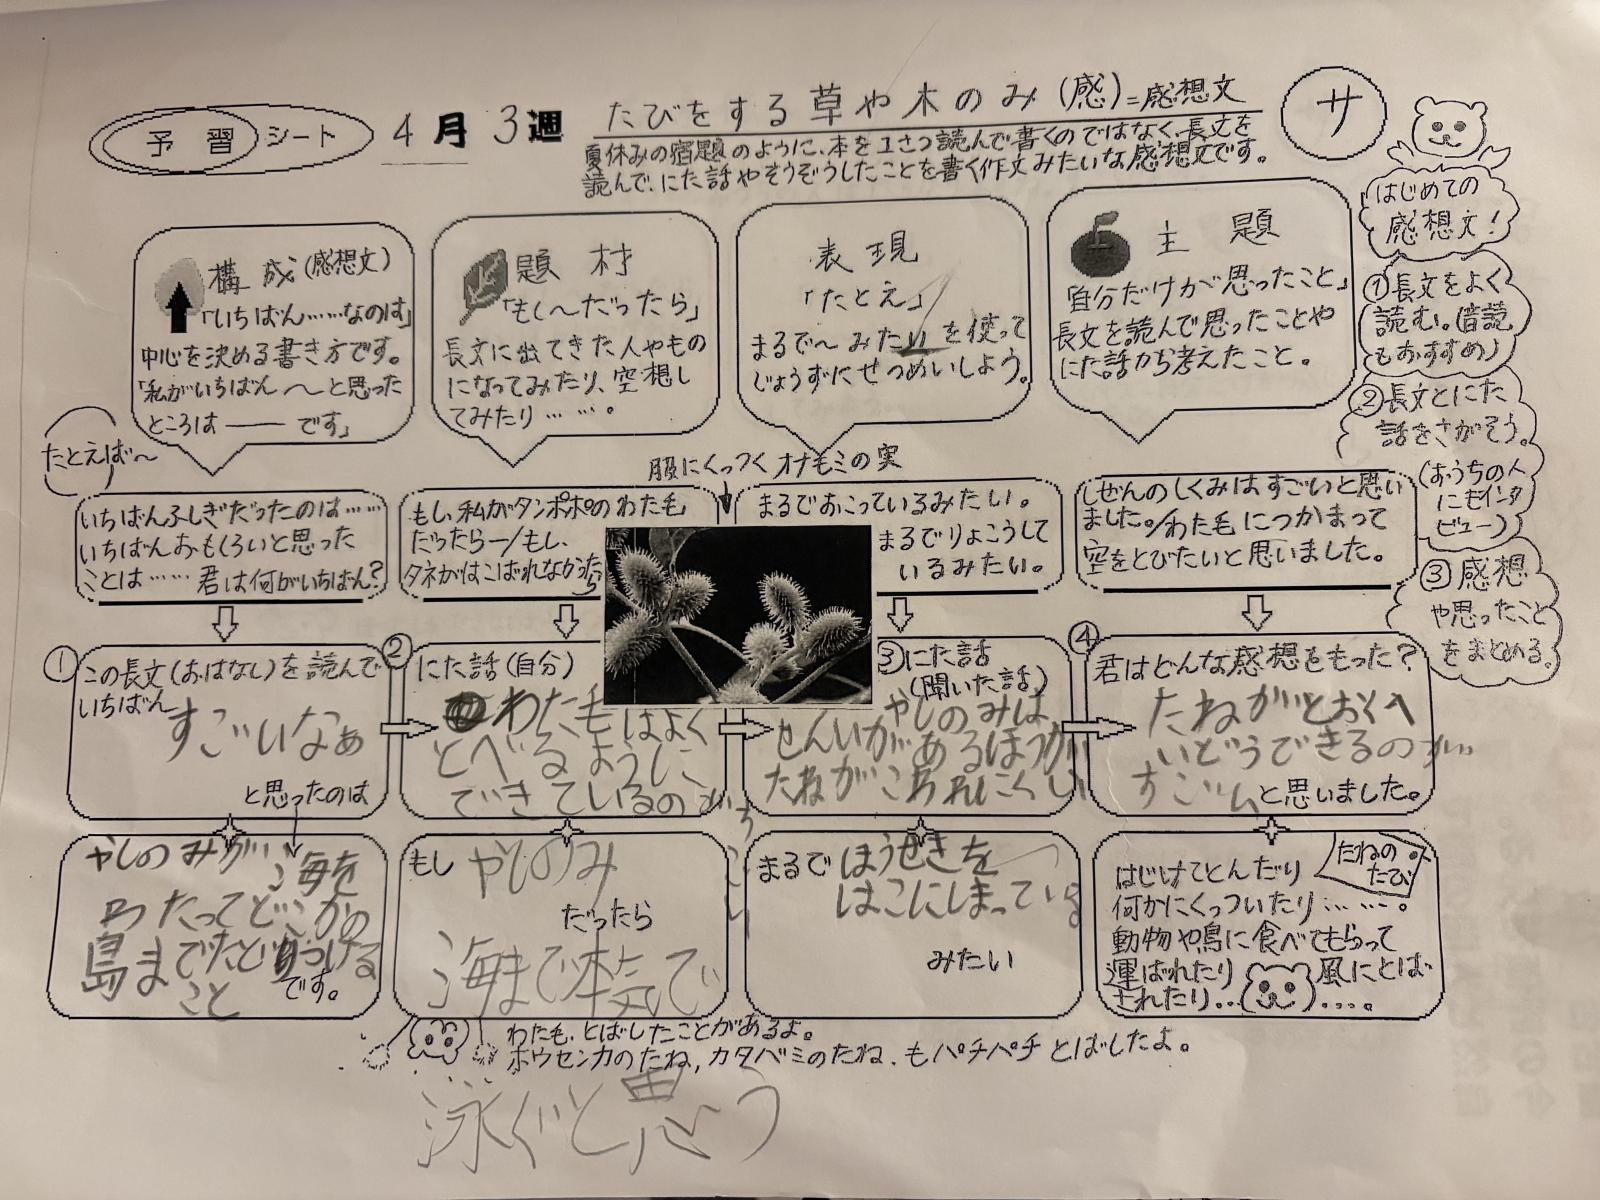 予習シート
4月3週
たびをする草や木のみ(感)=感想文
夏休みの宿題のように、本を1さつ読んで書くのではなく、長文を
読んで、にた話やそうぞうしたことを書く作文みたいな感想文です。
サ
はじめての
感想文!
①長文をよく
読む。(音読
もおすすめ)
②長文とにた
話をさがそう。
(おうちの人
にもインタ
ビュー)
③感想
や思ったこと
をまとめる。
構成(感想文)
「いちばん……なのは」
中心を決める書き方です。
「私がいちばん〜と思った
ところは―― です」
題材
「もし〜だったら」
長文に出てきた人やもの
になってみたり、空想し
てみたり……。
表現
「たとえ」
まるで〜みたいを使って
じょうずにせつめいしよう。
主題
「自分だけが思ったこと」
長文を読んで思ったことや
にた話から考えたこと。
たとえば〜
いちばんふしぎだったのは……
いちばんおもしろいと思った
ことは…… 君は何がいちばん?
もし、私がタンポポのわた毛
だったら―/もし、
タネがはこばれなかったら
服にくっつくオナモミの実
まるでおこっているみたい。
まるでりょこうして
いるみたい。
しぜんのしくみはすごいと思い
ました。/わた毛につかまって
空をとびたいと思いました。
①この長文(おはなし)を読んで
いちばん
すごいなぁ
と思ったのは
やしのみが海を
わたってどこかの
島までたどりつける
こと
です。
②にた話(自分)
わた毛はよく
とべるように
できているのが
もし やしのみ
だったら
海まで本気で
泳ぐと思う
③にた話
(聞いた話)
やしのみは
せんいがあるほうが
たねがこわれにくい
まるで ほうせきを
はこにしまっている
みたい
④君はどんな感想をもった?
たねがとおくへ
いどうできるのが
すごい
と思いました。
たねの
たび
はじけてとんだり
何かにくっついたり……。
動物や鳥に食べてもらって
運ばれたり 風にとば
されたり‥ ….
わた毛、とばしたことがあるよ。
ホウセンカのたね、カタバミのたね、もパチパチとばしたよ。